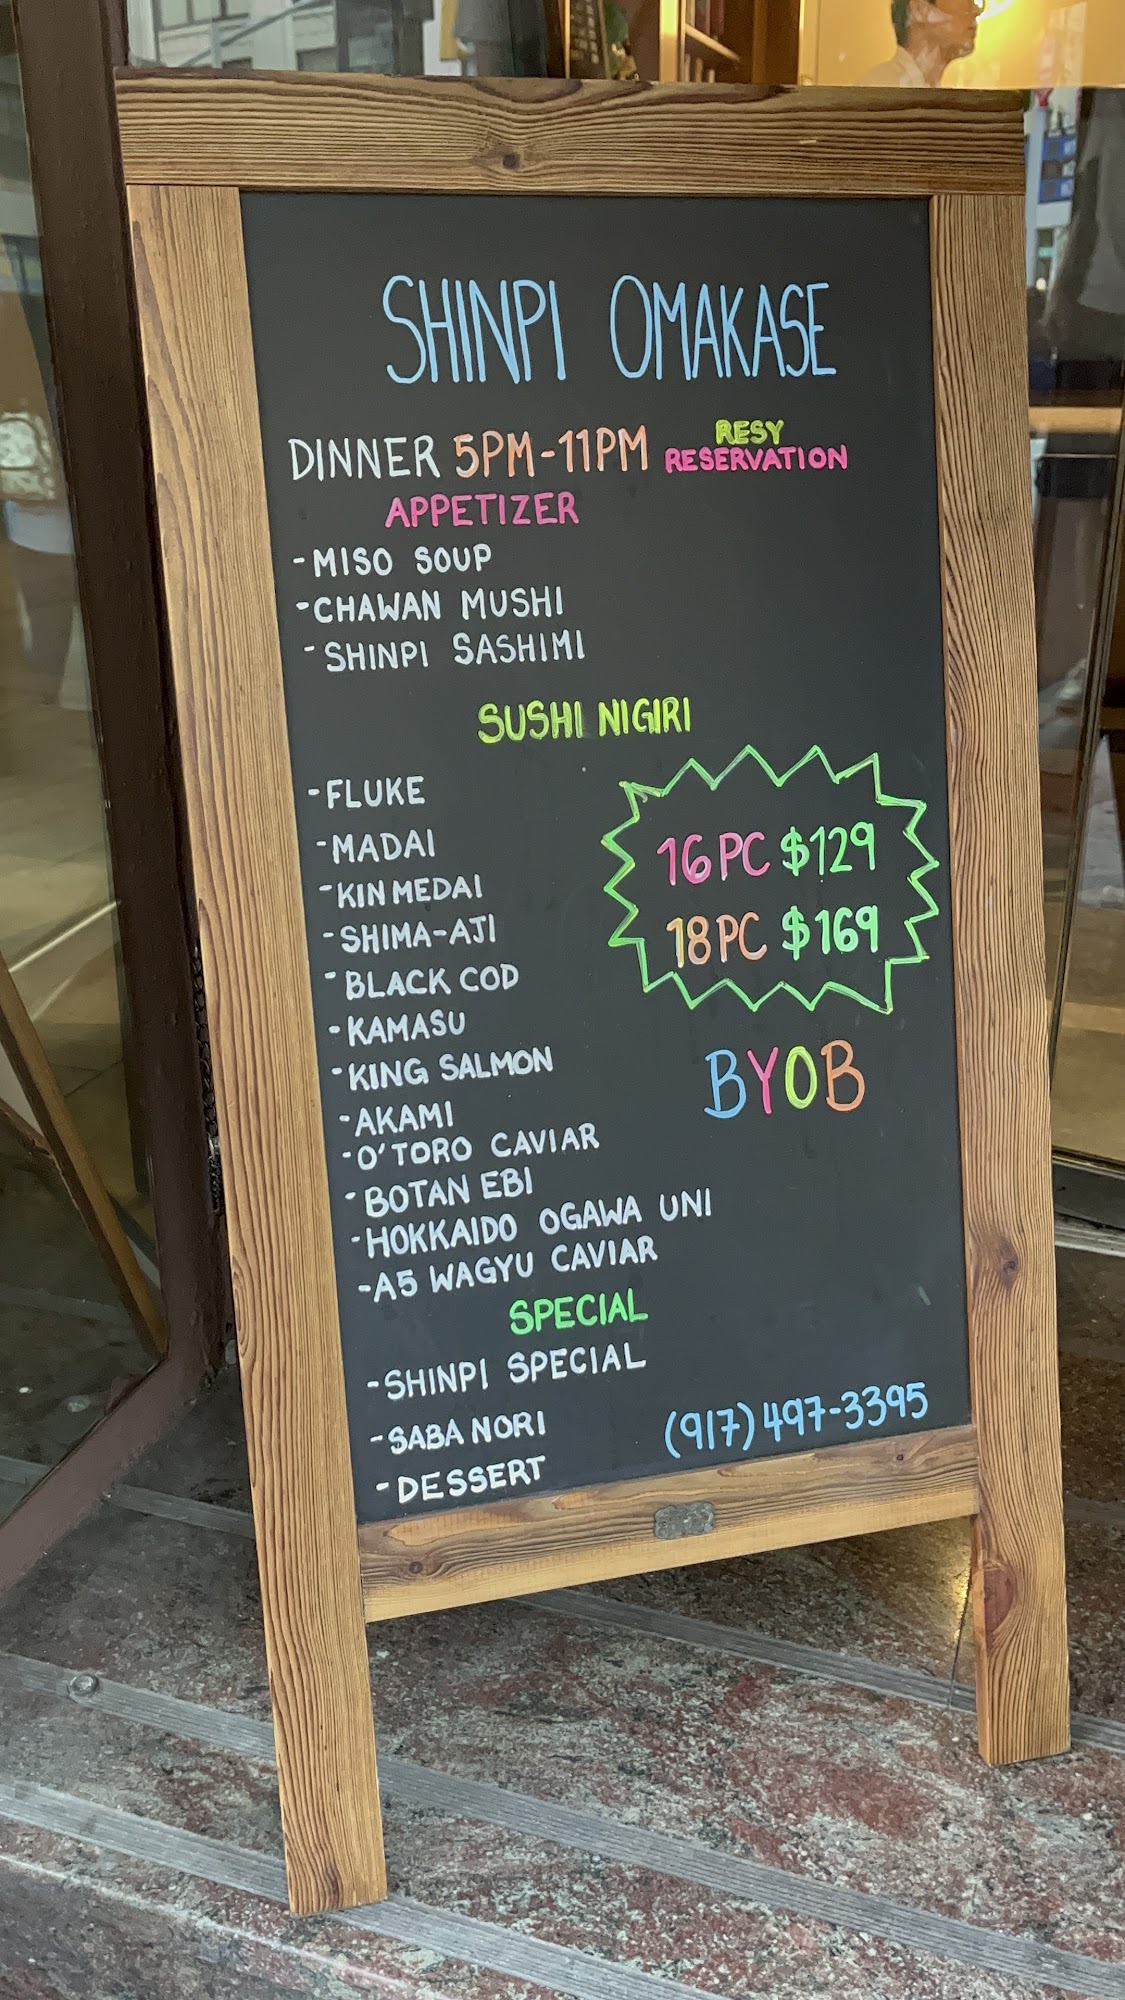 SHINPI OMAKASE
DINNER 5PM-11PM RESY RESERVATION
APPETIZER
-MISO SOUP
-CHAWAN MUSHI
-SHINPI SASHIMI
SUSHI NIGIRI
-FLUKE
-MADAI
-KINMEDAI
-SHIMA-AJI
-BLACK COD
-KAMASU
-KING SALMON
-AKAMI
-O'TORO CAVIAR
-BOTAN EBI
-HOKKAIDO OGAWA UNI
-A5 WAGYU CAVIAR
16PC $129
18PC $169
BYOB
SPECIAL
-SHINPI SPECIAL
-SABA NORI
-DESSERT
(917)497-3395